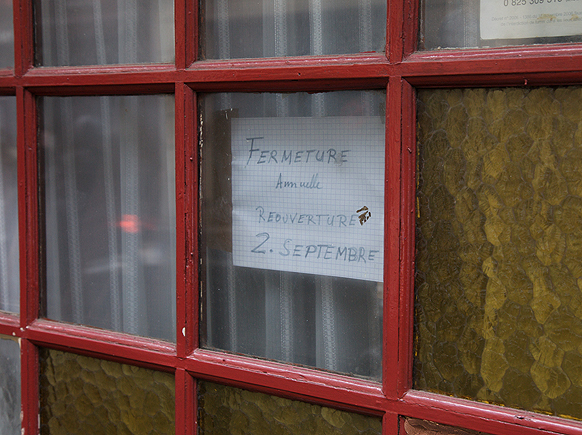 0 825 309 310
FERMETURE
Annuelle
REOUVERTURE
2. SEPTEMBRE